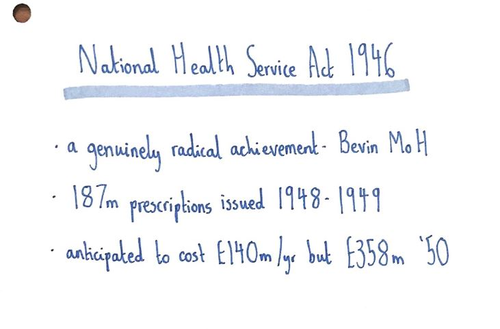 National Health Service Act 1946
· a genuinely radical achievement - Bevin MoH
· 187m prescriptions issued 1948 - 1949
· anticipated to cost £140m/yr but £358m '50